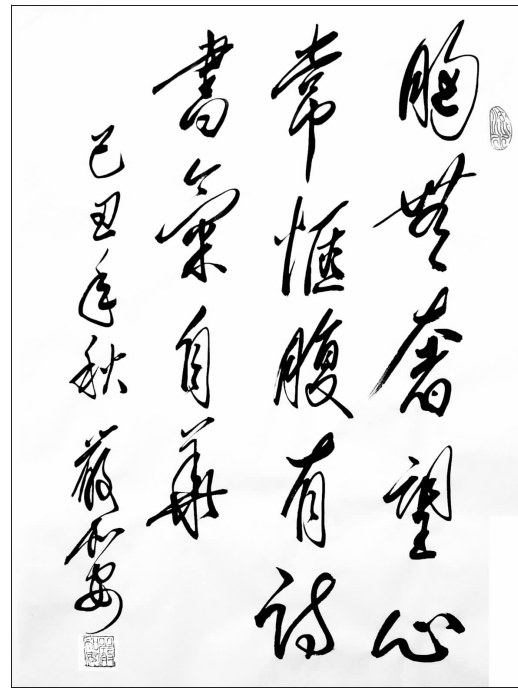 胸無奢望心
常愜腹有詩
書氣自華
己丑年秋 嚴加安